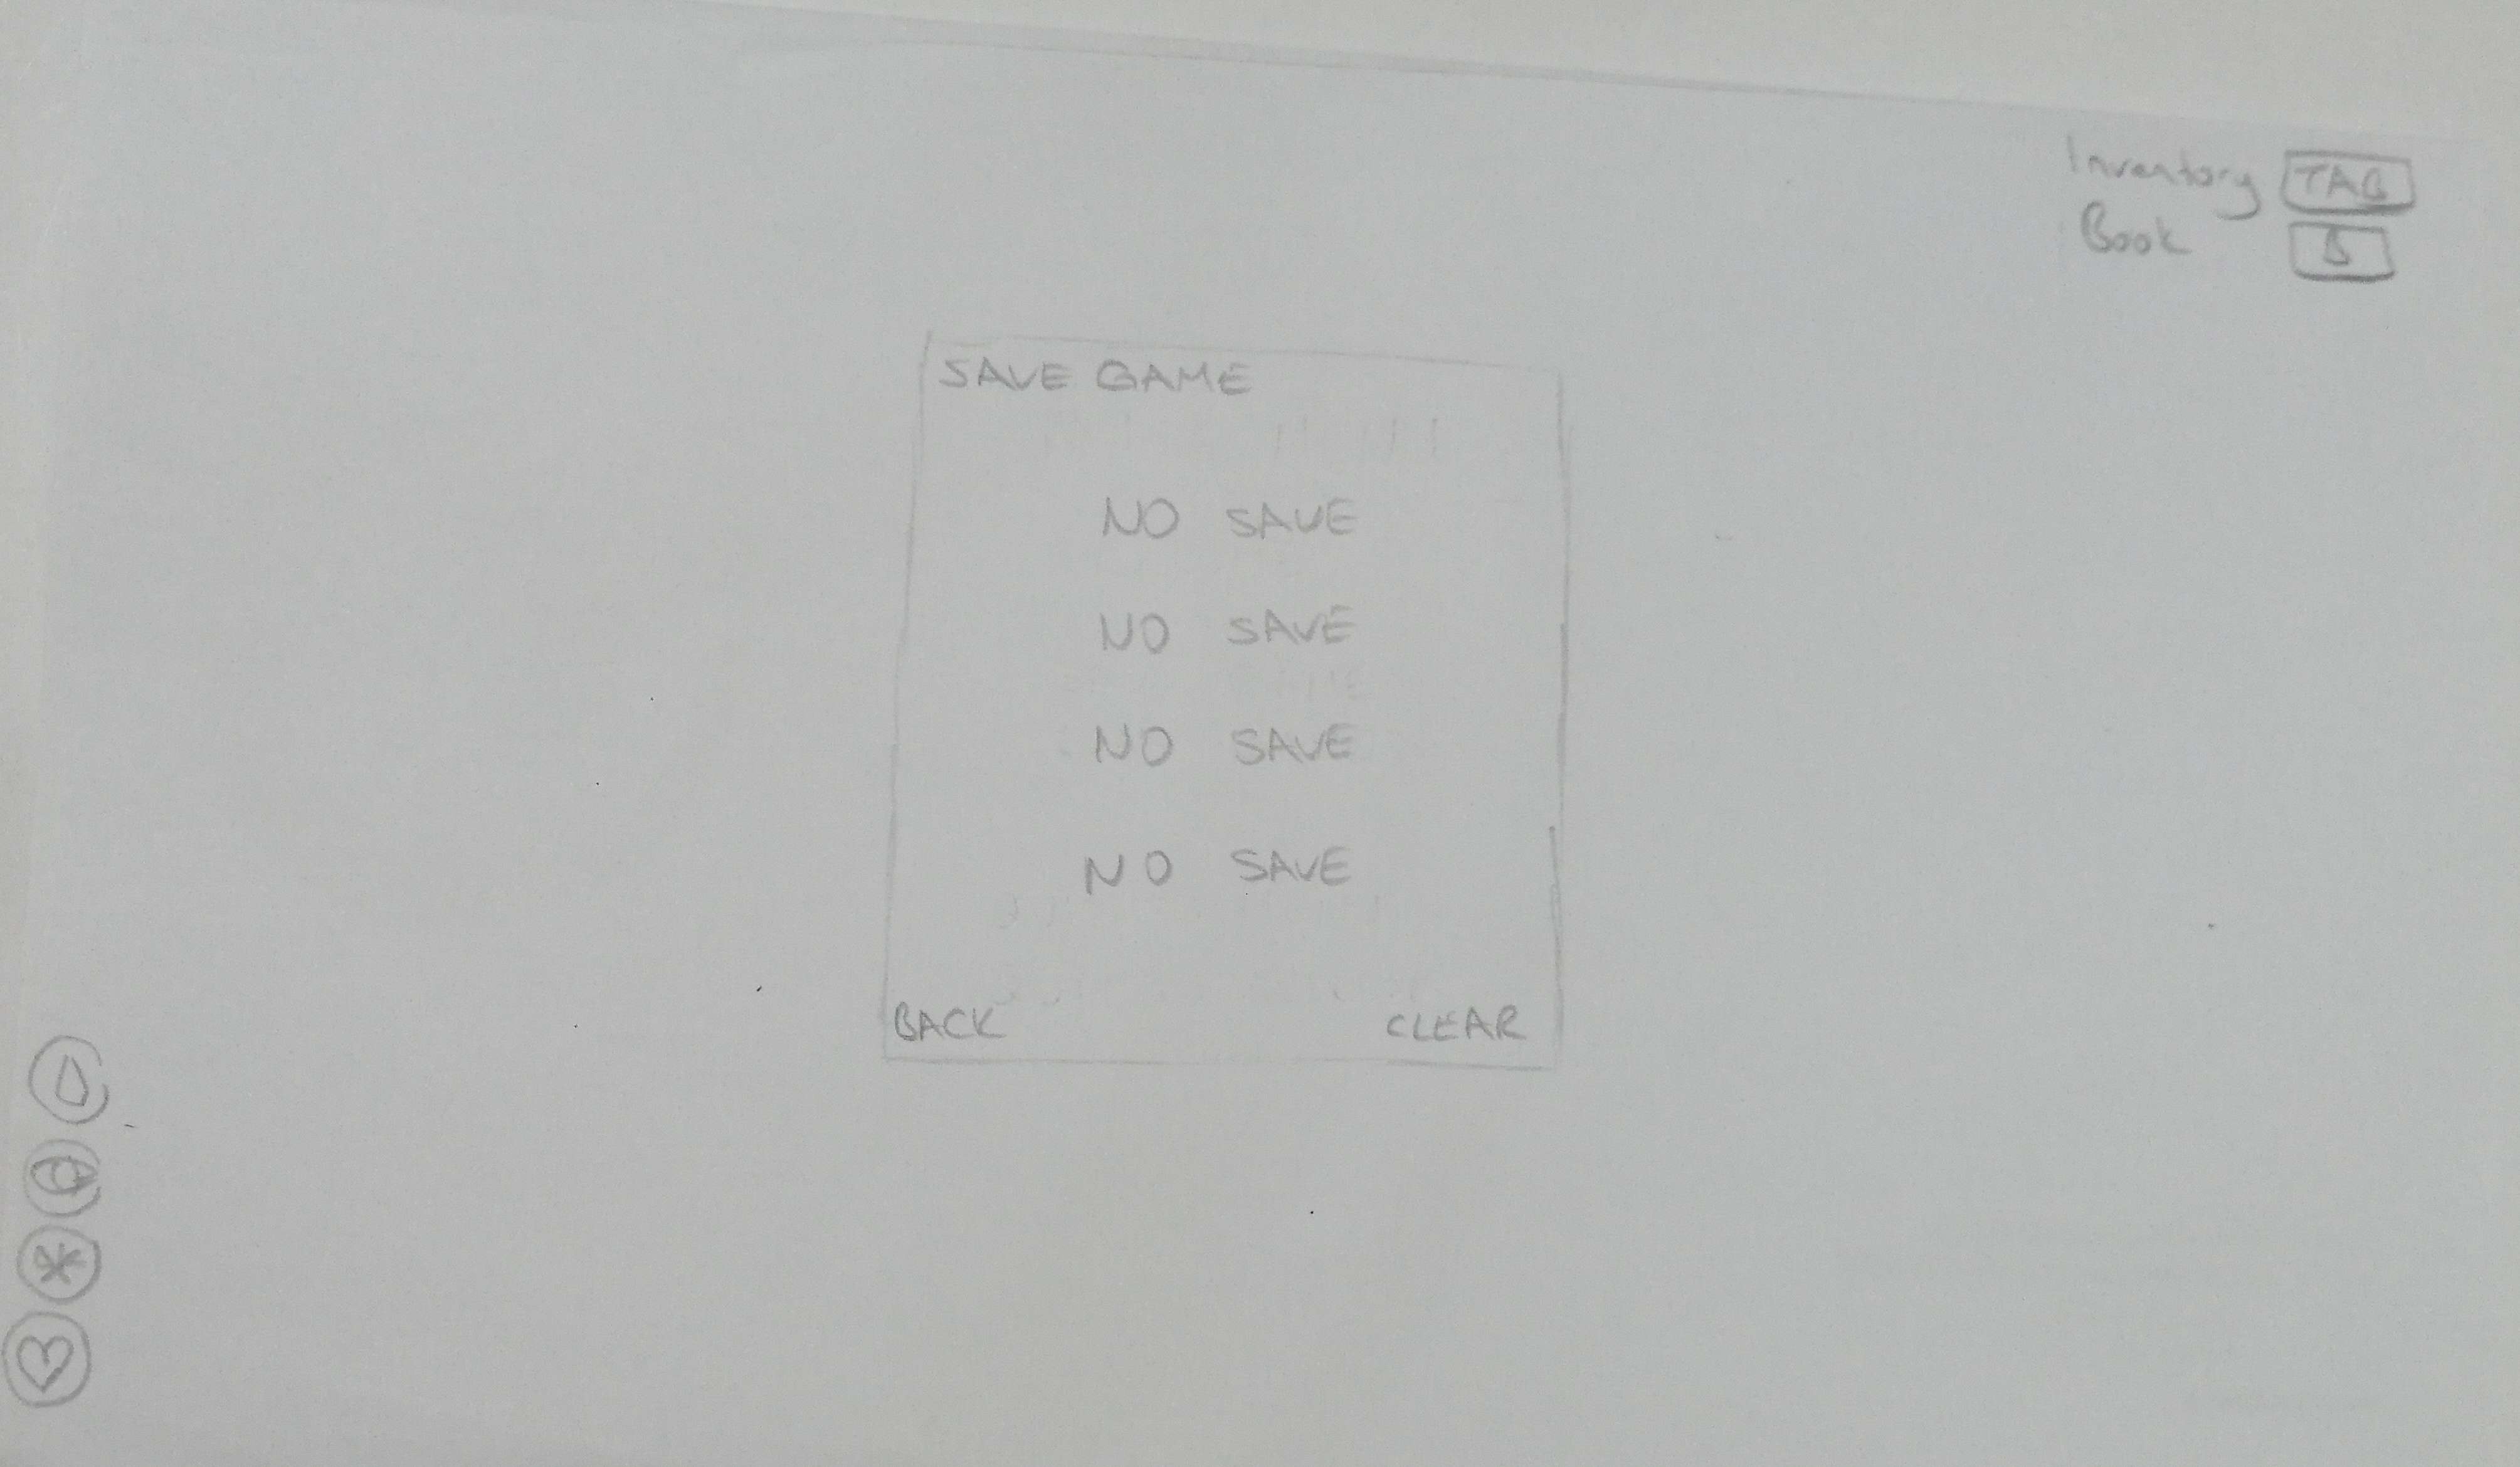 Inventory TAB
Book B
SAVE GAME
NO SAVE
NO SAVE
NO SAVE
NO SAVE
BACK CLEAR